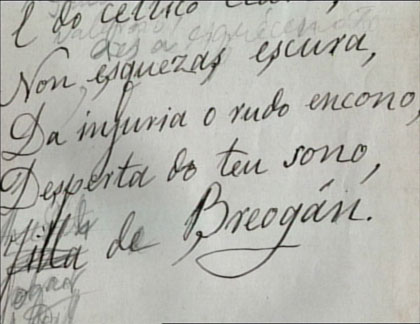 E do
Non esquezas escura,
Da injuria o rudo encono,
Desperta do teu sono,
filla de Breogán.